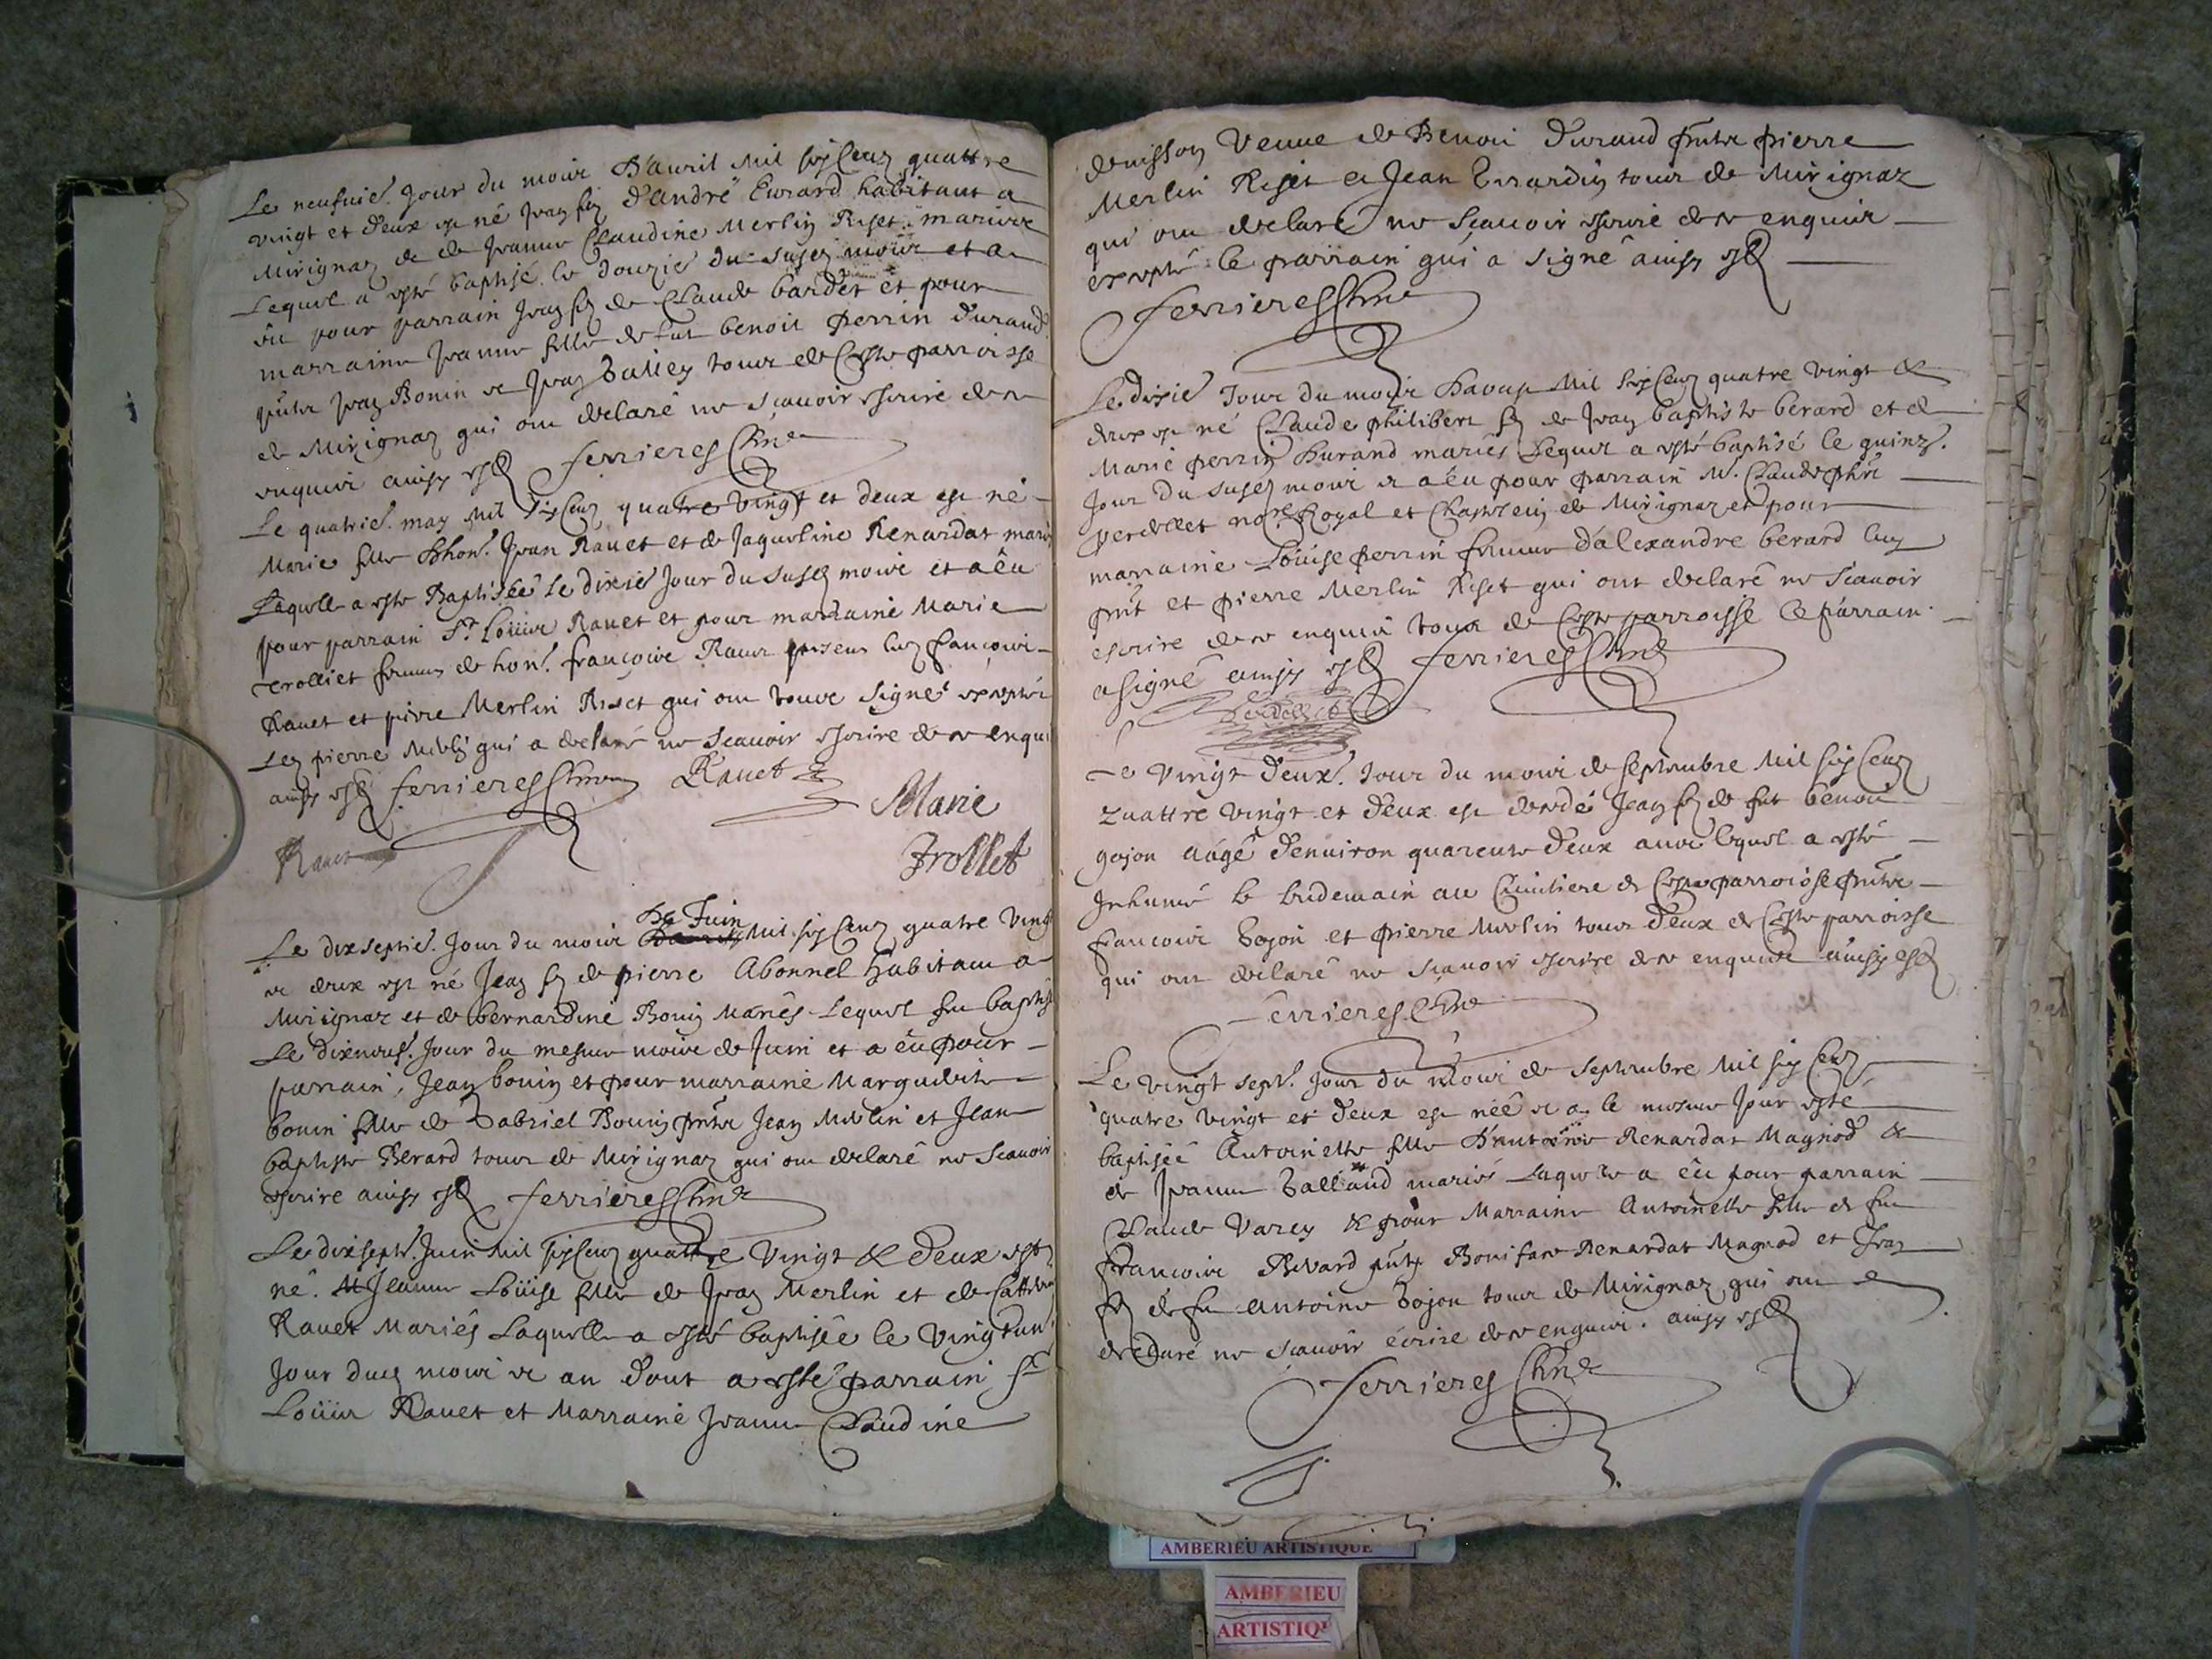 Le neufuie. Jour du mois D'auril Mil six Cens quattre
vingt et deux est né Jean fis d'andré Eurard habitant a
Mirignaz & de Jeanne Claudine Merlin Riset mariés
Lequel a esté baptisé le douzie du susd mois et an
eu pour parrain Jean fis de Claude bardet et pour
marraine Jeanne fille de fut benoit perrin durand
pnts Jean Bonin et Jean tous de Ceste parroisse
de Mirignaz qui ont declaré ne scauoir escrire de ce
enquis ainsy est ferrieres Cure
Le quatrie. may Mil six Cens quatre vingt et deux est né
Marie fille d'hon. Jean Rauet et de Jaqueline Renardat mariés
Laquelle a este Baptisée le dixie Jour du susd mois et a êu
pour parrain Sr. Loüis Rauet et pour marraine Marie
Trolliet femme de hon. francois Rauet francois
Rauet et pierre Merlin Riset qui ont tous signé excepté
Led pierre Merlin qui a declaré ne scauoir escrire de ce enquis
ainsy est ferrieres Cure Rauet
Marie
Trollet
Rauet
De Juin
Le dixseptie. Jour du mois Mil six Cens quatre vingt
et deux est né Jean fis de pierre Abonnel habitant a
Mirignaz et de bernardine Bonin Mariés Lequel fut baptisé
Le dixneuf. Jour du mesme mois de Juin et a êu pour
parrain, Jean bonin et pour marraine Marguerite
bonin fille de Gabriel Bonin pnts Jean Merlin et Jean
baptiste Berard tous de Mirignaz qui ont declaré ne Scauoir
escrire ainsy est ferrieres Cure
Le dixsept. Juin Mil six Cens quattre vingt & deux est
né. Jeanne Loüise fille de Jean Merlin et de Catherine
Rauet Mariés Laquelle a esté baptisée le vingtun
Jour dud mois et an dont a esté parrain Sr
Loüis Rauet et Marraine Jeanne Claudine
veuue de Benoit Durand pnts pierre
Merlin Riset et Jean tous de Mirignaz
qui ont declaré ne scauoir escrire de ce enquis
excepté le parrain qui a signé ainsy est
ferrieres Cure
Le dixie Jour du mois d'aoust Mil six Cens quatre vingt &
deux est né Claude philibert fis de Jean baptiste berard et de
Marie perrin durand mariés Lequel a esté baptisé le quinz.
Jour du susd mois et a êu pour parrain M. Claude phi
perdellet Royal et de Mirignaz et pour
marraine Loüise perrin femme d'alexandre berard
pnt et pierre Merlin Riset qui ont declaré ne scauoir
escrire de ce enquis tous de Ceste parroisse Le parrain
a signé ainsy est ferrieres Cure
Perdellet
Le vingt deux. Jour du mois de septembre Mil six Cens
quattre vingt et deux est decedé Jean fis de fut benoit
gojon aagé denuiron quarente deux ans lequel a esté
Inhumé le lendemain au Cimitiere de Ceste parroisse pnts
francois gojon et pierre Merlin tous deux de Ceste parroisse
qui ont declaré ne scauoir escrire de ce enquis ainsy est
ferrieres Cure
Le vingt sept. Jour du mois de septembre Mil six Cens
quatre vingt et deux est née et a le mesme Jour esté
baptisée Antoinette fille d'antoine Renardat Magnod &
de Jeanne Galland mariés Laquelle a êu pour parrain
Claude Varey & pour Marraine Antoinette fille de fut
francois Berard pnts Boniface Renardat Magnod et Jean
fis de fut Antoine Gojon tous de Mirignaz qui ont
declaré ne scauoir écrire de ce enquis. ainsy est
ferrieres Cure
AMBERIEU ARTISTIQUE
AMBERIEU
ARTISTIQU